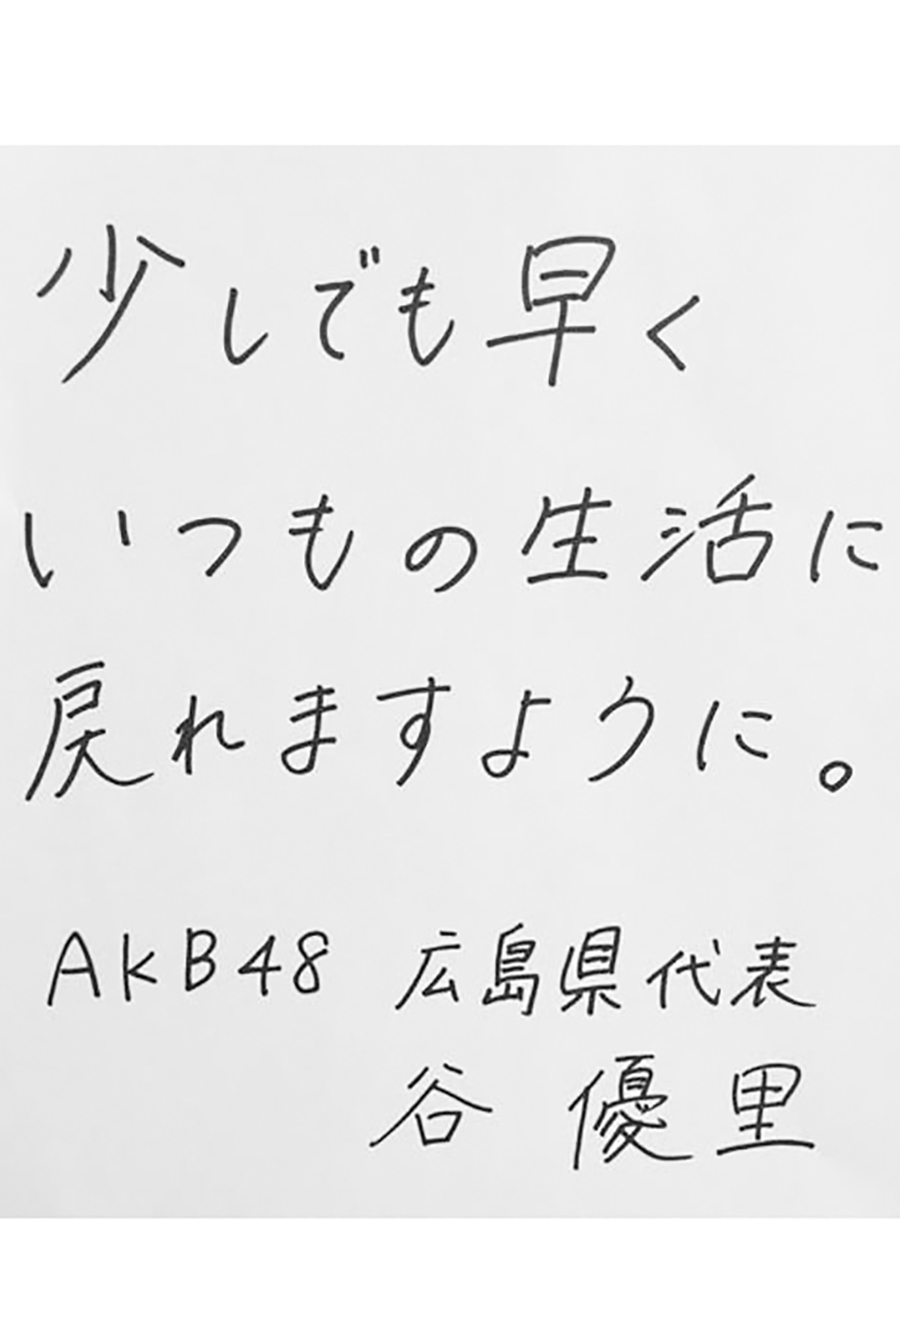 少しでも早く
いつもの生活に
戻れますように。
AKB48 広島県代表
谷 優里